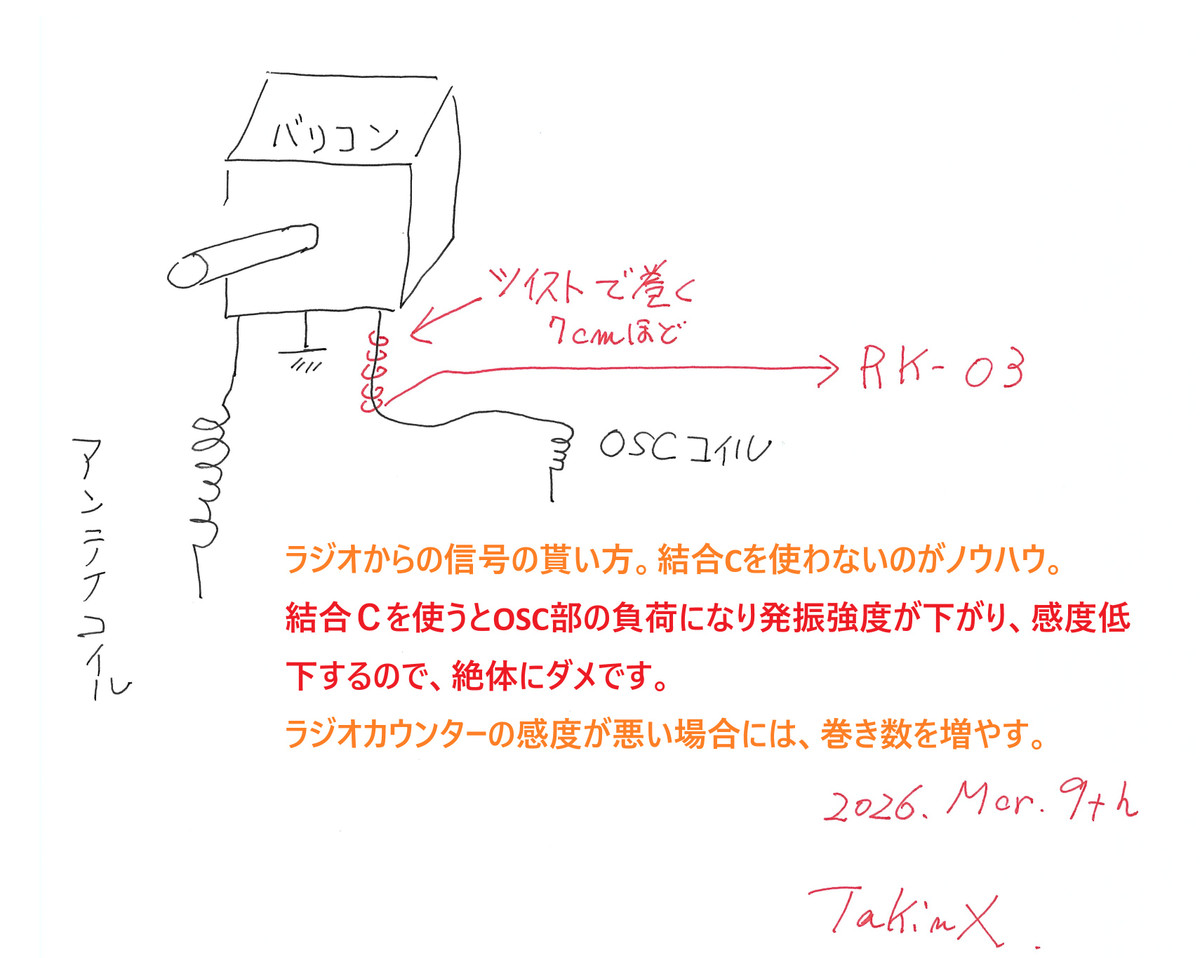 バリコン
ツイストで巻く
7cmほど
RK-03
OSCコイル
アンテナコイル
ラジオからの信号の貰い方。結合Cを使わないのがノウハウ。
結合Ｃを使うとOSC部の負荷になり発振強度が下がり、感度低
下するので、絶体にダメです。
ラジオカウンターの感度が悪い場合には、巻き数を増やす。
2026. Mar. 9th
TakinX.